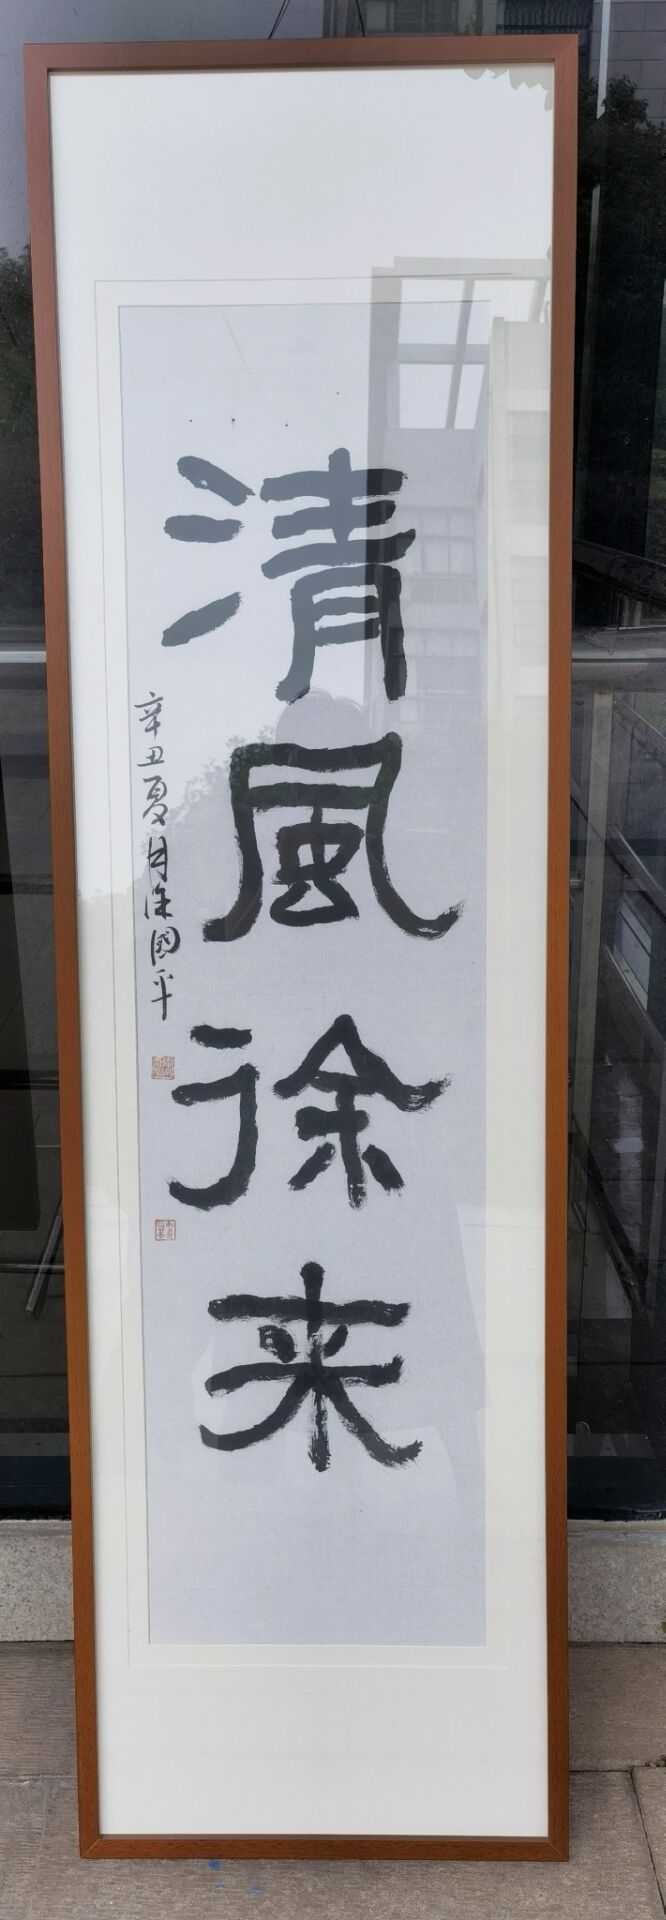 清風徐来
辛丑夏月徐國平